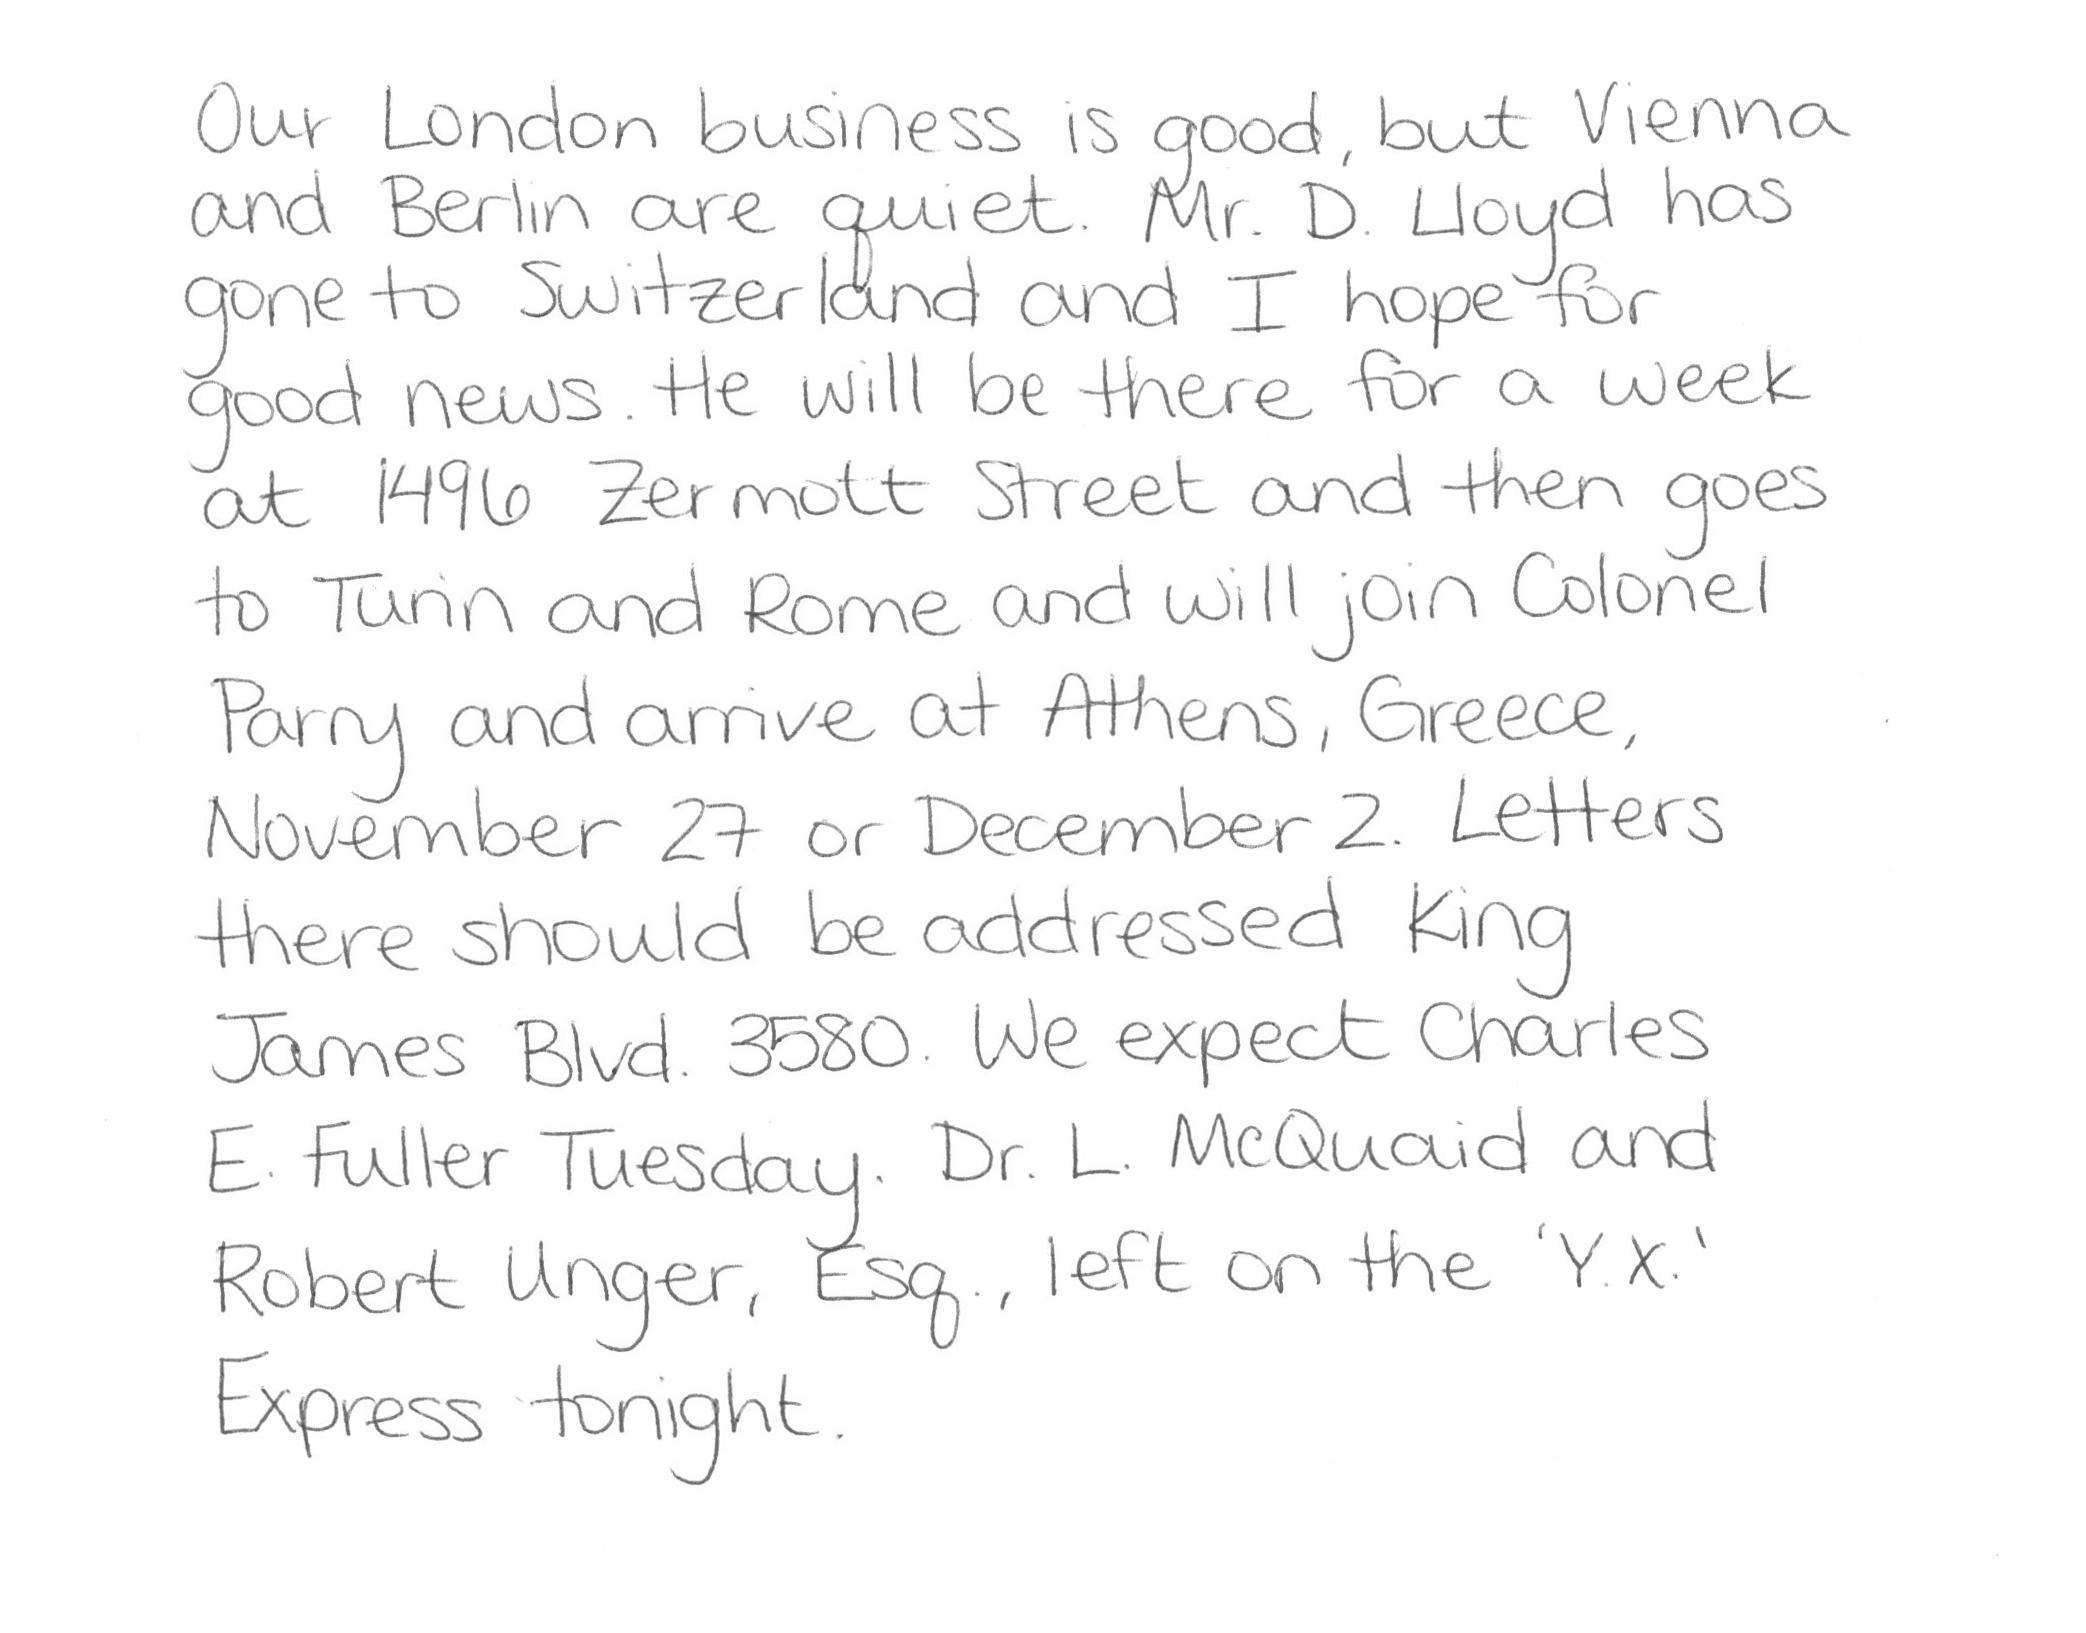 Our London business is good, but Vienna
and Berlin are quiet. Mr. D. Lloyd has
gone to Switzerland and I hope for
good news. He will be there for a week
at 1496 Zermott Street and then goes
to Turin and Rome and will join Colonel
Parry and arrive at Athens, Greece,
November 27 or December 2. Letters
there should be addressed King
James Blvd. 3580. We expect Charles
E. Fuller Tuesday. Dr. L. McQuaid and
Robert Unger, Esq., left on the 'Y.X.'
Express tonight.